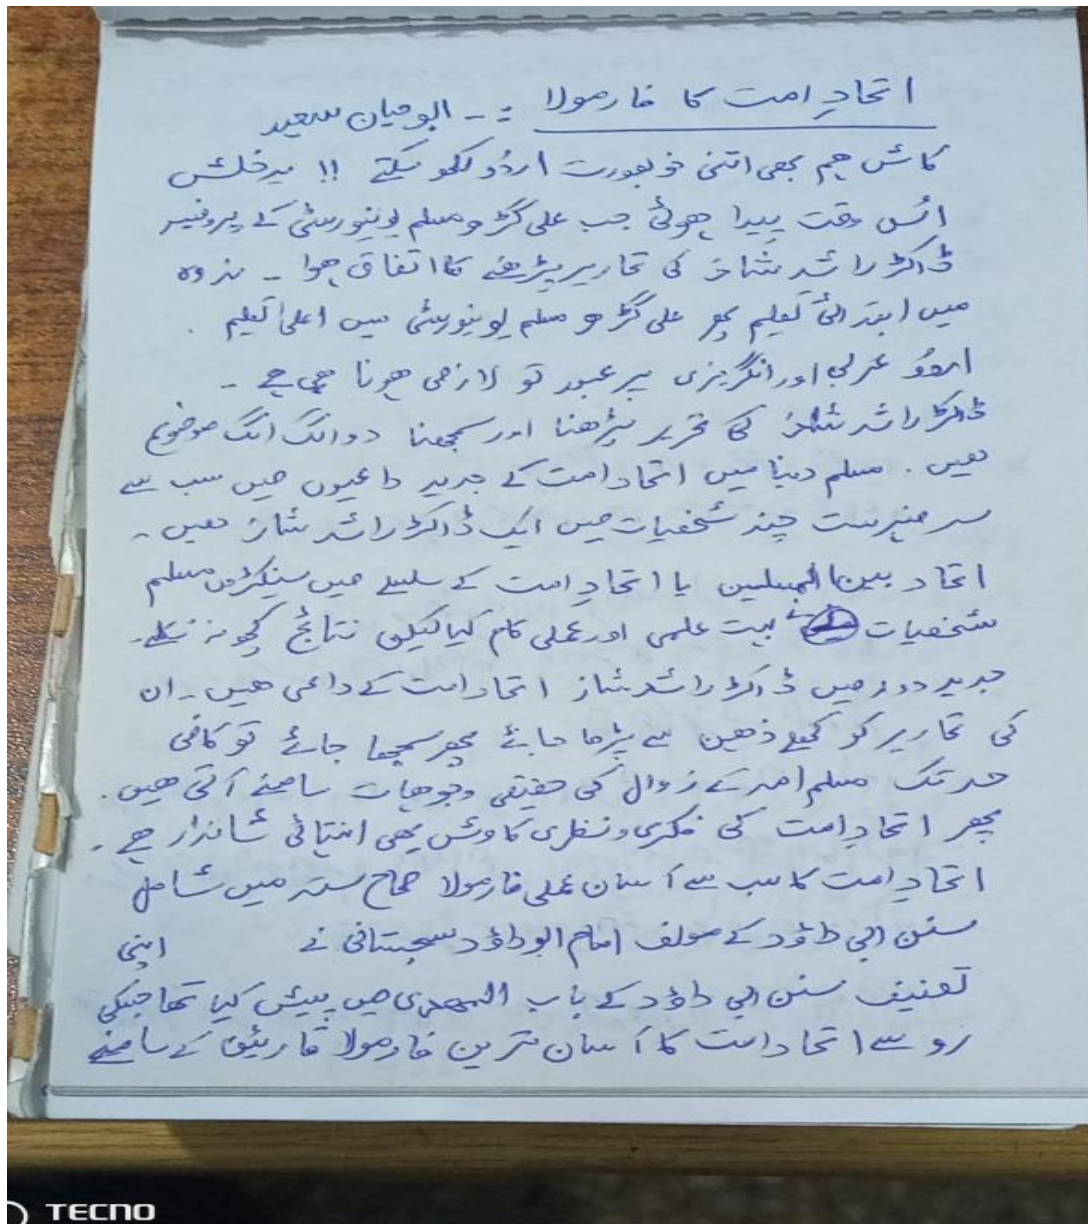 اتحادِ امت کا فارمولا :۔ ابو میان سعید
کاش ہم بھی اتنی خوبصورت اردُو لکھ سکتے !! یہ خلش
اُس وقت پیدا ہوئی جب علی گڑھ مسلم یونیورسٹی کے پروفیسر
ڈاکٹر راشد شاز کی تحاریر پڑھنے کا اتفاق ہوا ۔ ندوہ
میں ابتدائی تعلیم پھر علی گڑھ مسلم یونیورسٹی میں اعلیٰ تعلیم .
اردُو عربی اور انگریزی پر عبور تو لازمی ہونا ہی ہے ۔
ڈاکٹر راشد شاز کی تحریر پڑھنا اور سمجھنا دو الگ الگ موضوع
ہیں . مسلم دنیا میں اتحاد امت کے جدید داعیوں میں سب سے
سر فہرست چند شخصیات میں ایک ڈاکٹر راشد شاز ہیں ۔
اتحاد بین المسلمین یا اتحادِ امت کے سلسلے میں سینکڑوں مسلم
شخصیات نے بہت علمی اور عملی کام کیا لیکن نتائج کچھ نہ نکلے ۔
جدید دور میں ڈاکٹر راشد شاز اتحاد امت کے داعی ہیں ۔ ان
کی تحاریر کو کھلے ذہین سے پڑھا جائے پھر سمجھا جائے تو کافی
حد تک مسلم امہ کے زوال کی حقیقی وجوہات سامنے آتی ہیں .
پھر اتحادِ امت کی فکری و نظری کاوش بھی انتہائی شاندار ہے ۔
اتحادِ امت کا سب سے آسان عملی فارمولا صحاح ستہ میں شامل
سنن ابی داؤد کے مولف امام ابو داؤد سجستانی نے اپنی
تصنیف سنن ابی داؤد کے باب المھدی میں پیش کیا تھا جسکی
رو سے اتحاد امت کا آسان ترین فارمولا قارئین کے سامنے
TECNO